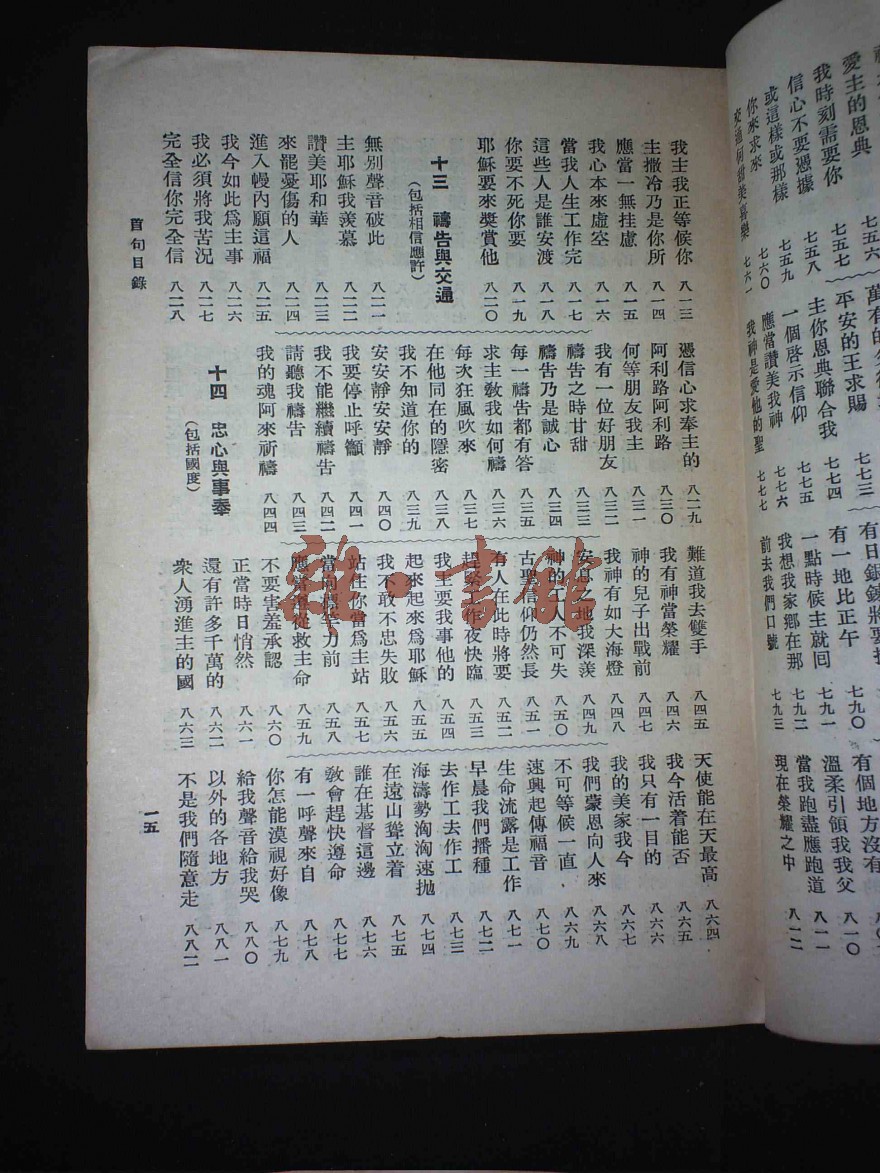 愛主的恩典 七五六
我時刻需要你 七五七
信心不要憑據 七五八
或這樣或那樣 七五九
你來求來 七六〇
七六一
平安的王求賜 七七三
主你恩典聯合我 七七四
一個啓示信仰 七七五
應當讚美我神 七七六
我神是愛他的聖 七七七
有一地比正午 七九〇
一點時候主就回 七九一
我想我家鄉在那 七九二
前去我們口號 七九三
有個地方沒有
溫柔引領我我父 八一〇
當我跑盡應跑道 八一一
現在榮耀之中 八一二
我主我正等候你 八一三
主撒冷乃是你所 八一四
應當一無挂慮 八一五
我心本來虛空 八一六
當我人生工作完 八一七
這些人是誰安渡 八一八
你要不死你要 八一九
耶穌要來獎賞他 八二〇
十三 禱告與交通
(包括相信應許)
無別聲音破此 八二一
主耶穌我羨慕 八二二
讚美耶和華 八二三
來罷憂傷的人 八二四
進入幔內願這福 八二五
我今如此爲主事 八二六
我必須將我苦況 八二七
完全信你完全信 八二八
憑信心求奉主的 八二九
阿利路阿利路 八三〇
何等朋友我主 八三一
我有一位好朋友 八三二
禱告之時甘甜 八三三
禱告乃是誠心 八三四
每一禱告都有答 八三五
求主教我如何禱 八三六
每次狂風吹來 八三七
在他同在的隱密 八三八
我不知道你的 八三九
安安靜安安靜 八四〇
我要停止呼籲 八四一
我不能繼續禱告 八四二
請聽我禱告 八四三
我的魂阿來祈禱 八四四
十四 忠心與事奉
(包括國度)
難道我去雙手 八四五
我有神當榮耀 八四六
神的兒子出戰前 八四七
我神有如大海燈 八四八
安息之地我深羨 八四九
神的工人不可失 八五〇
古聖信仰仍然長 八五一
有人在此時將要 八五二
趕緊工作夜快臨 八五三
我主要我事他的 八五四
起來起來爲耶穌 八五五
我不敢不忠失敗 八五六
站住你當爲主站 八五七
當向標竿力前 八五八
應當順從救主命 八五九
不要害羞承認 八六〇
正當時日悄然 八六一
還有許多千萬的 八六二
衆人湧進主的國 八六三
天使能在天最高 八六四
我今活着能否 八六五
我只有一目的 八六六
我的美家我今 八六七
我們蒙恩向人來 八六八
不可等候一直 八六九
速興起傳福音 八七〇
生命流露是工作 八七一
早晨我們播種 八七二
去作工去作工 八七三
海濤勢洶洶速拋 八七四
在遠山聳立着 八七五
誰在基督這邊 八七六
教會趕快遵命 八七七
有一呼聲來自 八七八
你怎能漠視好像 八七九
給我聲音給我哭 八八〇
以外的各地方 八八一
不是我們隨意走 八八二
首句目錄
一五